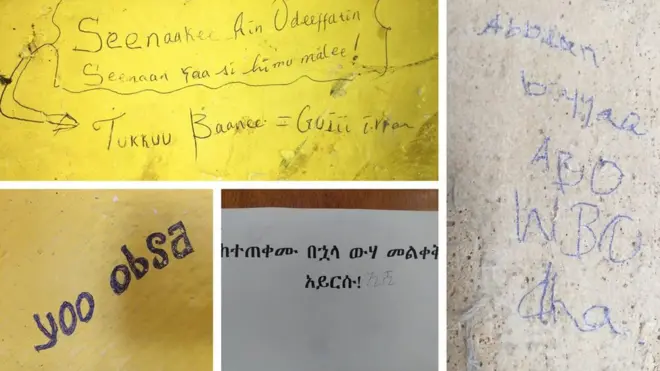 Seenaakee Ain Odeeffatin
Seenaan kaa si himu malee!
Tukkuu Baanee = Gujii irraa
yoo obsa
ከተጠቀሙ በኋላ ውሃ መልቀቅ
አይርሱ! እሺ
Abbaan
biyyaa
ABO
WBO
dha.